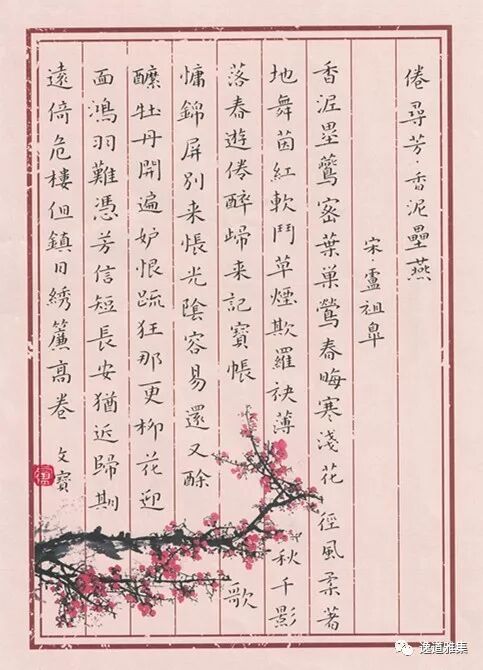 倦尋芳·香泥壘燕
宋盧祖皋
香泥壘鷰密葉巢鶯春晦寒淺花徑風柔著
地舞茵紅軟鬥草煙欺羅袂薄秋千影
落春遊倦醉歸来記寶帳歌
慵錦屏別来悵光陰容易還又酴
醾牡丹開遍妒恨疏狂那更柳花迎
面鴻羽難憑芳信短長安猶近歸期
遠倚危樓但鎮日繡簾高卷 文寶
逸道雅集